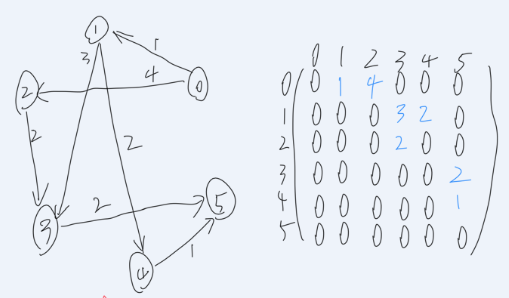 1
3
1
2
4
0
2
2
3
2
5
4
1
0 1 2 3 4 5
0 0 1 4 0 0 0
1 0 0 0 3 2 0
2 0 0 0 2 0 0
3 0 0 0 0 0 2
4 0 0 0 0 0 1
5 0 0 0 0 0 0